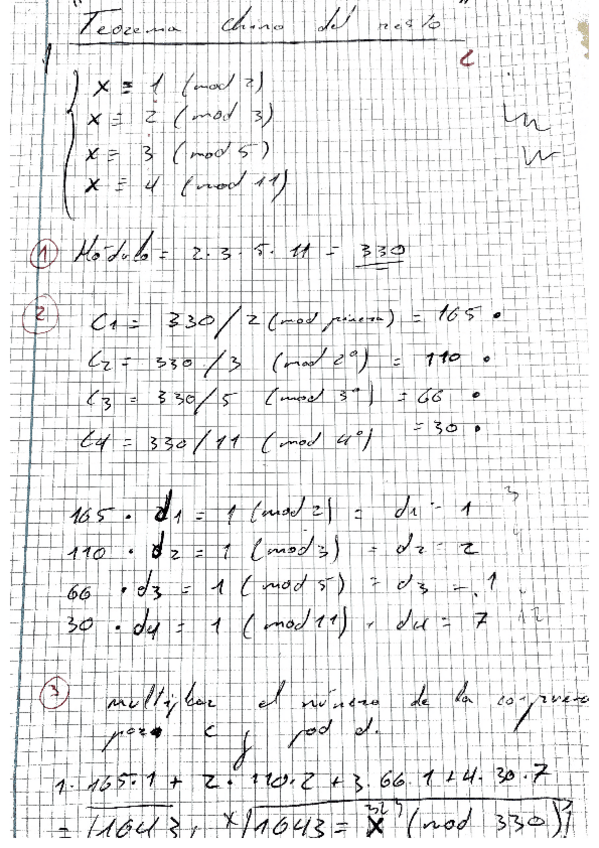 Teorema Chino del resto
x ≡ 1 (mod 2)
x ≡ 2 (mod 3)
x ≡ 3 (mod 5)
x ≡ 4 (mod 11)
① Módulo = 2·3·5·11 = 330
② C1 = 330/2 (mod primera) = 165 •
C2 = 330/3 (mod 2º) = 110 •
C3 = 330/5 (mod 3º) = 66 •
C4 = 330/11 (mod 4º) = 30 •
165 · d1 = 1 (mod 2) = d1 = 1
110 · d2 = 1 (mod 3) = d2 = 2
66 · d3 = 1 (mod 5) = d3 = 1
30 · d4 = 1 (mod 11), d4 = 7
③ multiplicar el número de la congruen
por c y pod d.
1·165·1 + 2·110·2 + 3·66·1 + 4·30·7
= 1643, x 1643 = x (mod 330)
323